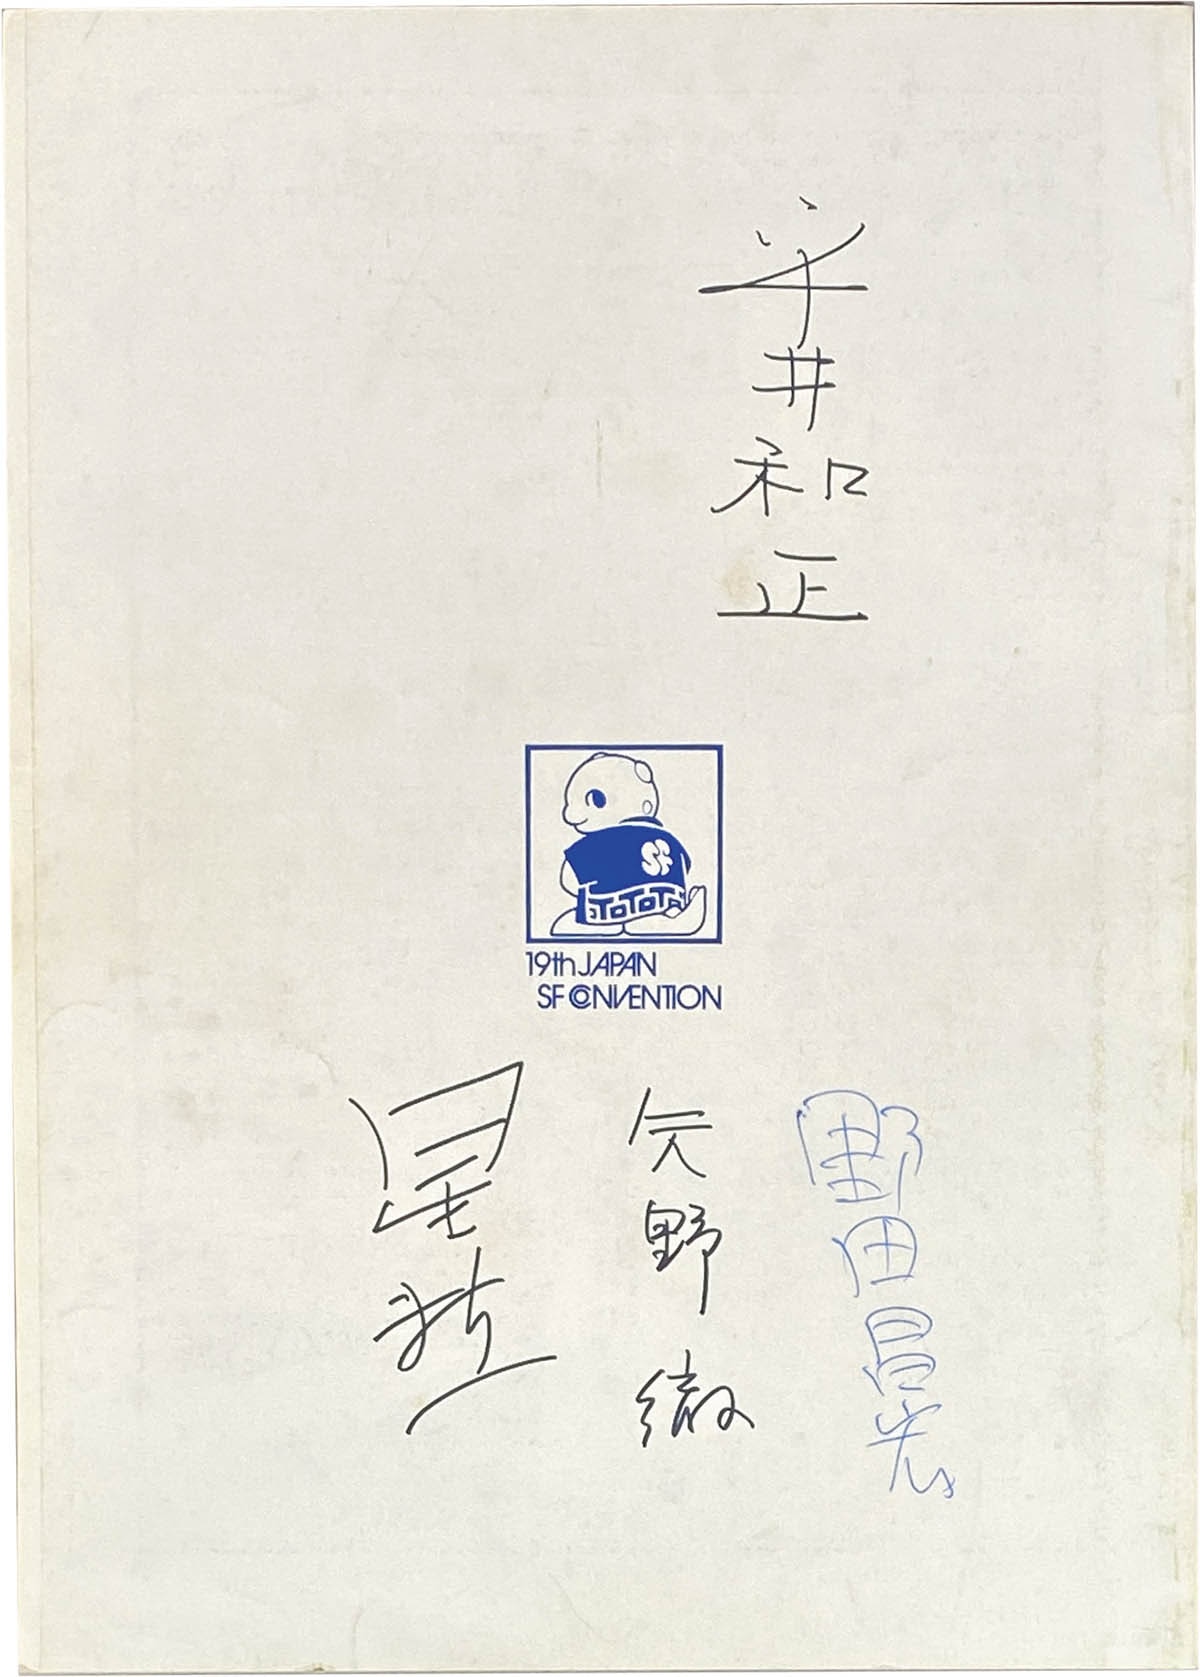 平井和正
SF
TOTOTA
19th JAPAN
SF CONVENTION
野田昌宏
矢野徹
星新一